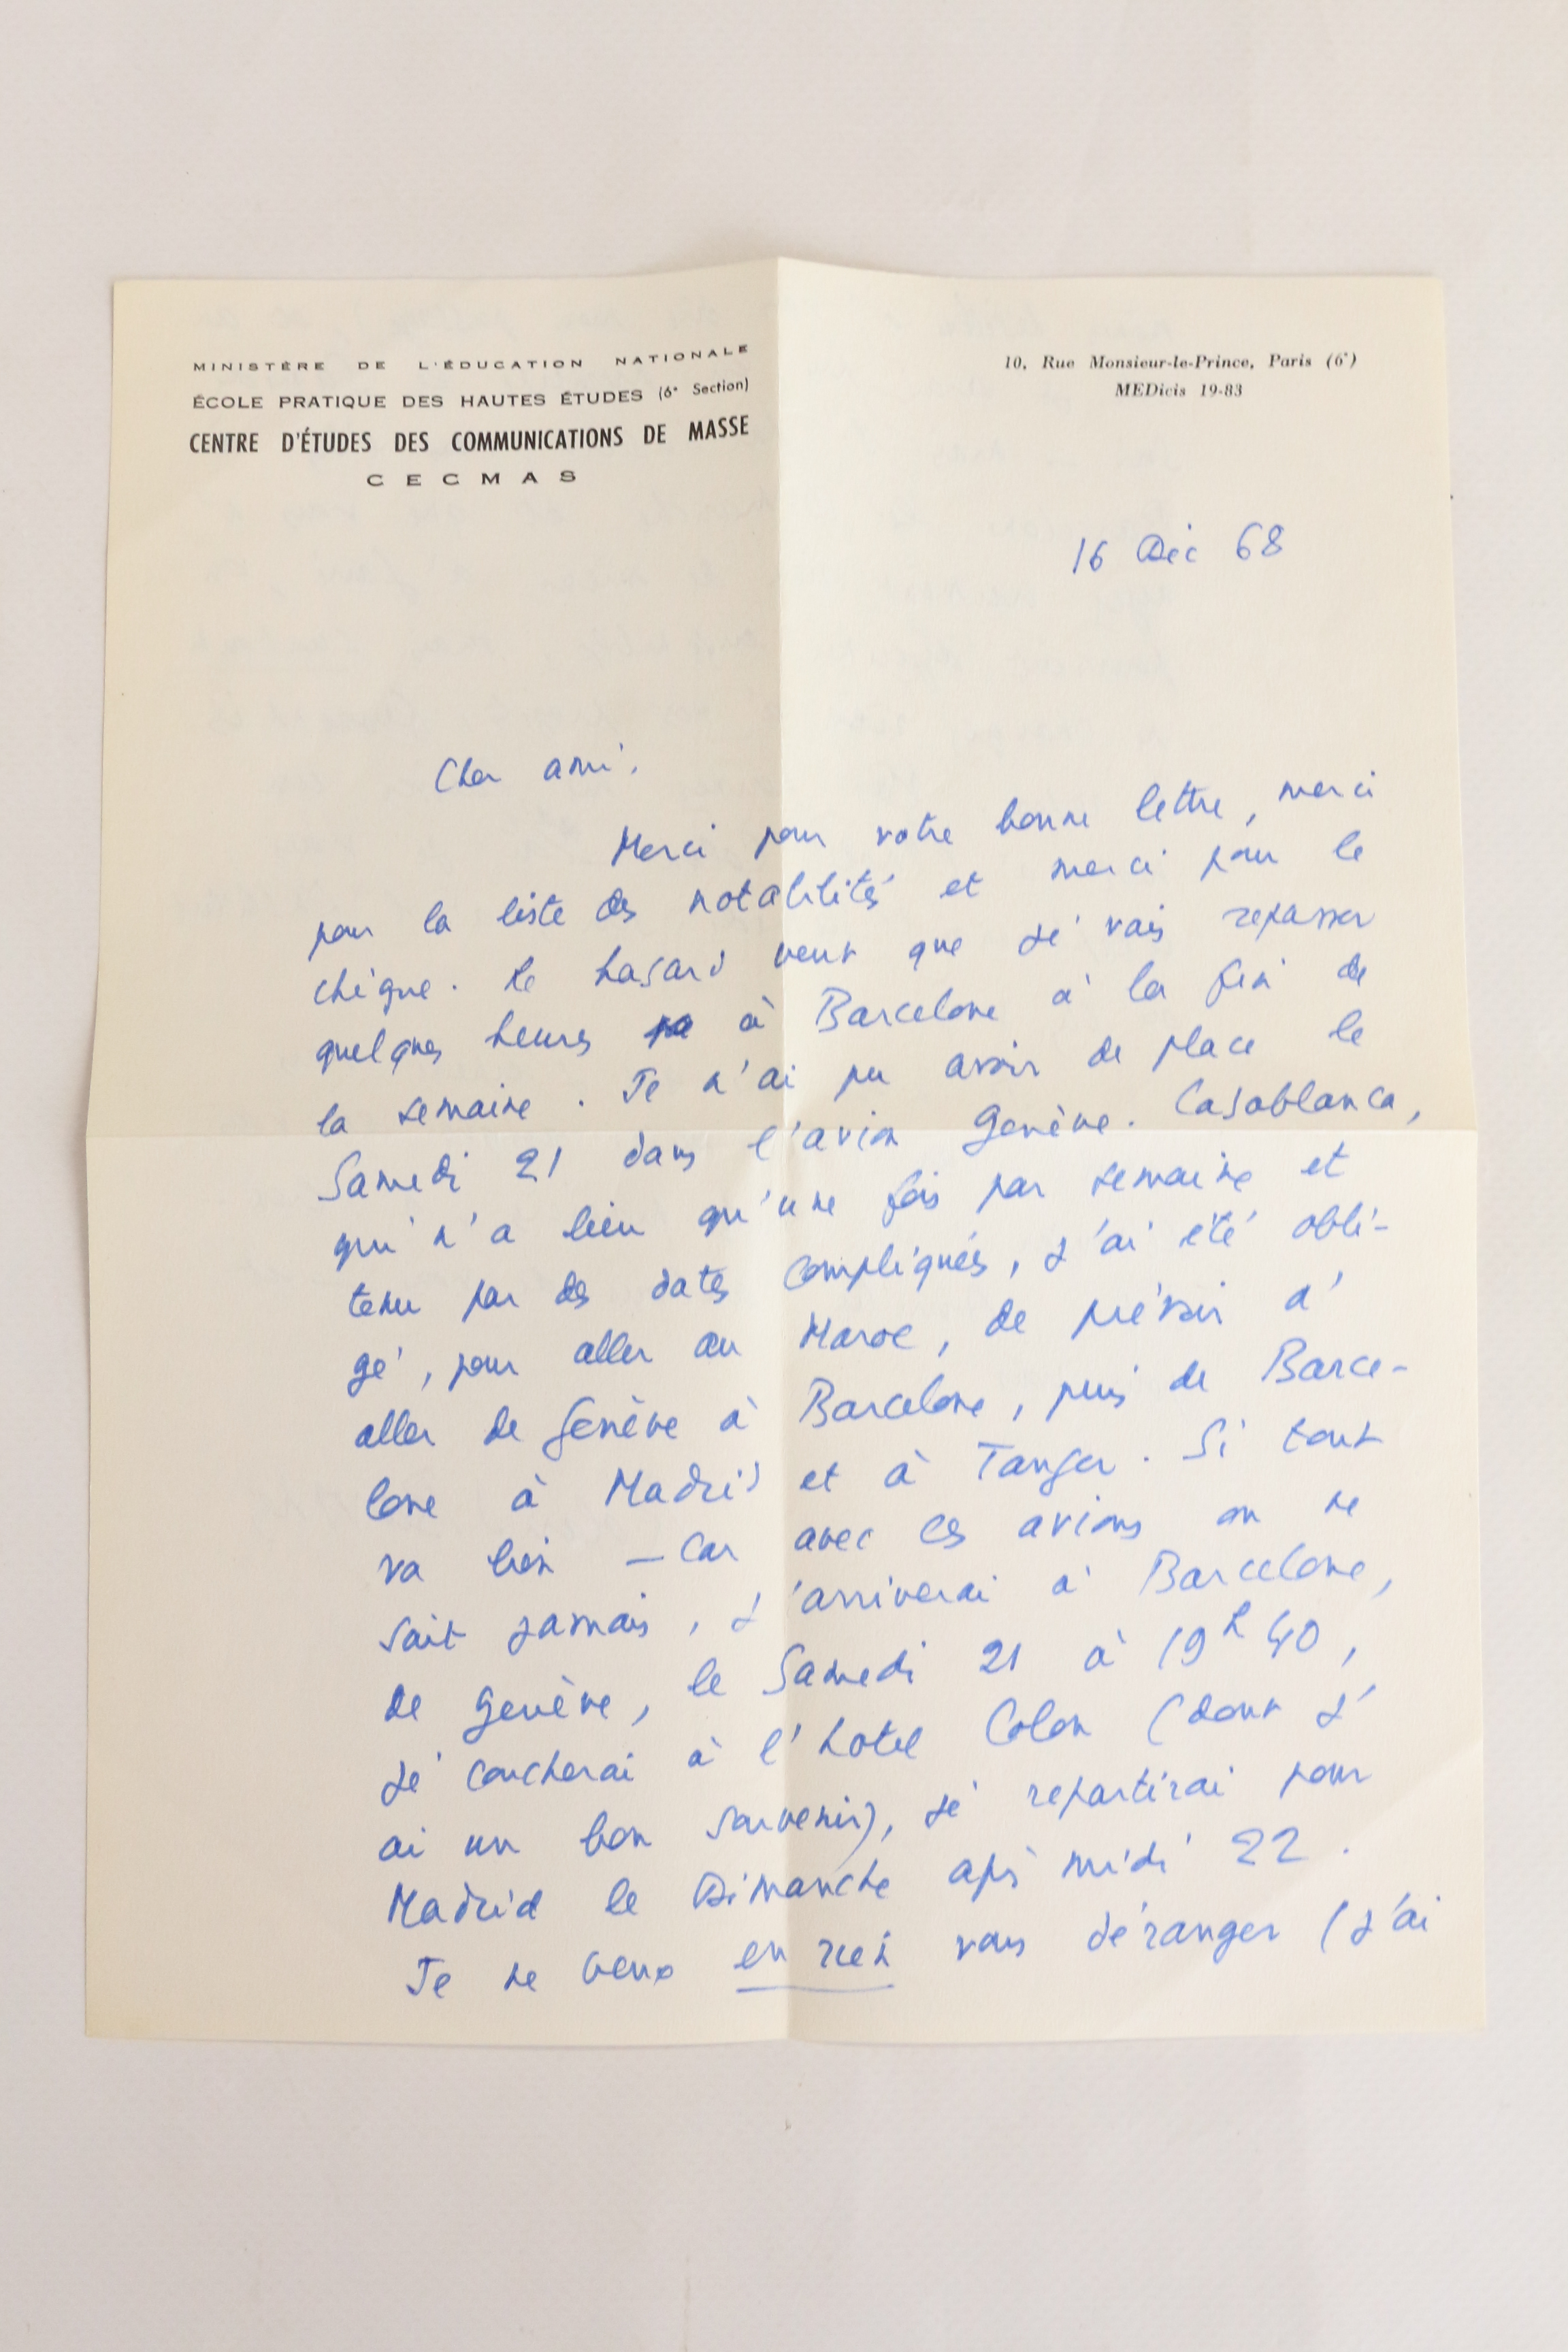 MINISTÈRE DE L'ÉDUCATION NATIONALE
ÉCOLE PRATIQUE DES HAUTES ÉTUDES (6e Section)
CENTRE D'ÉTUDES DES COMMUNICATIONS DE MASSE
CECMAS
10, Rue Monsieur-le-Prince, Paris (6e)
MEDicis 19-83
16 Déc 68
Cher ami,
Merci pour votre bonne lettre, merci
pour la liste des notabilités et merci pour le
chèque. Le hasard veut que je vais repasser
quelques heures à Barcelone à la fin de
la semaine. Je n'ai pu avoir de place le
Samedi 21 dans l'avion Genève-Casablanca,
qui n'a lieu qu'une fois par semaine et
tenu par des dates compliquées, j'ai été obli-
gé, pour aller au Maroc, de prévoir d'
aller de Genève à Barcelone, puis de Barce-
lone à Madrid et à Tanger. Si tout
va bien — car avec ces avions on ne
sait jamais, j'arriverai à Barcelone,
de Genève, le Samedi 21 à 19h 40,
je coucherai à l'hotel Colon (dont j'
ai un bon souvenir), je repartirai pour
Madrid le Dimanche aps midi 22.
Je ne veux en rien vous déranger (j'ai